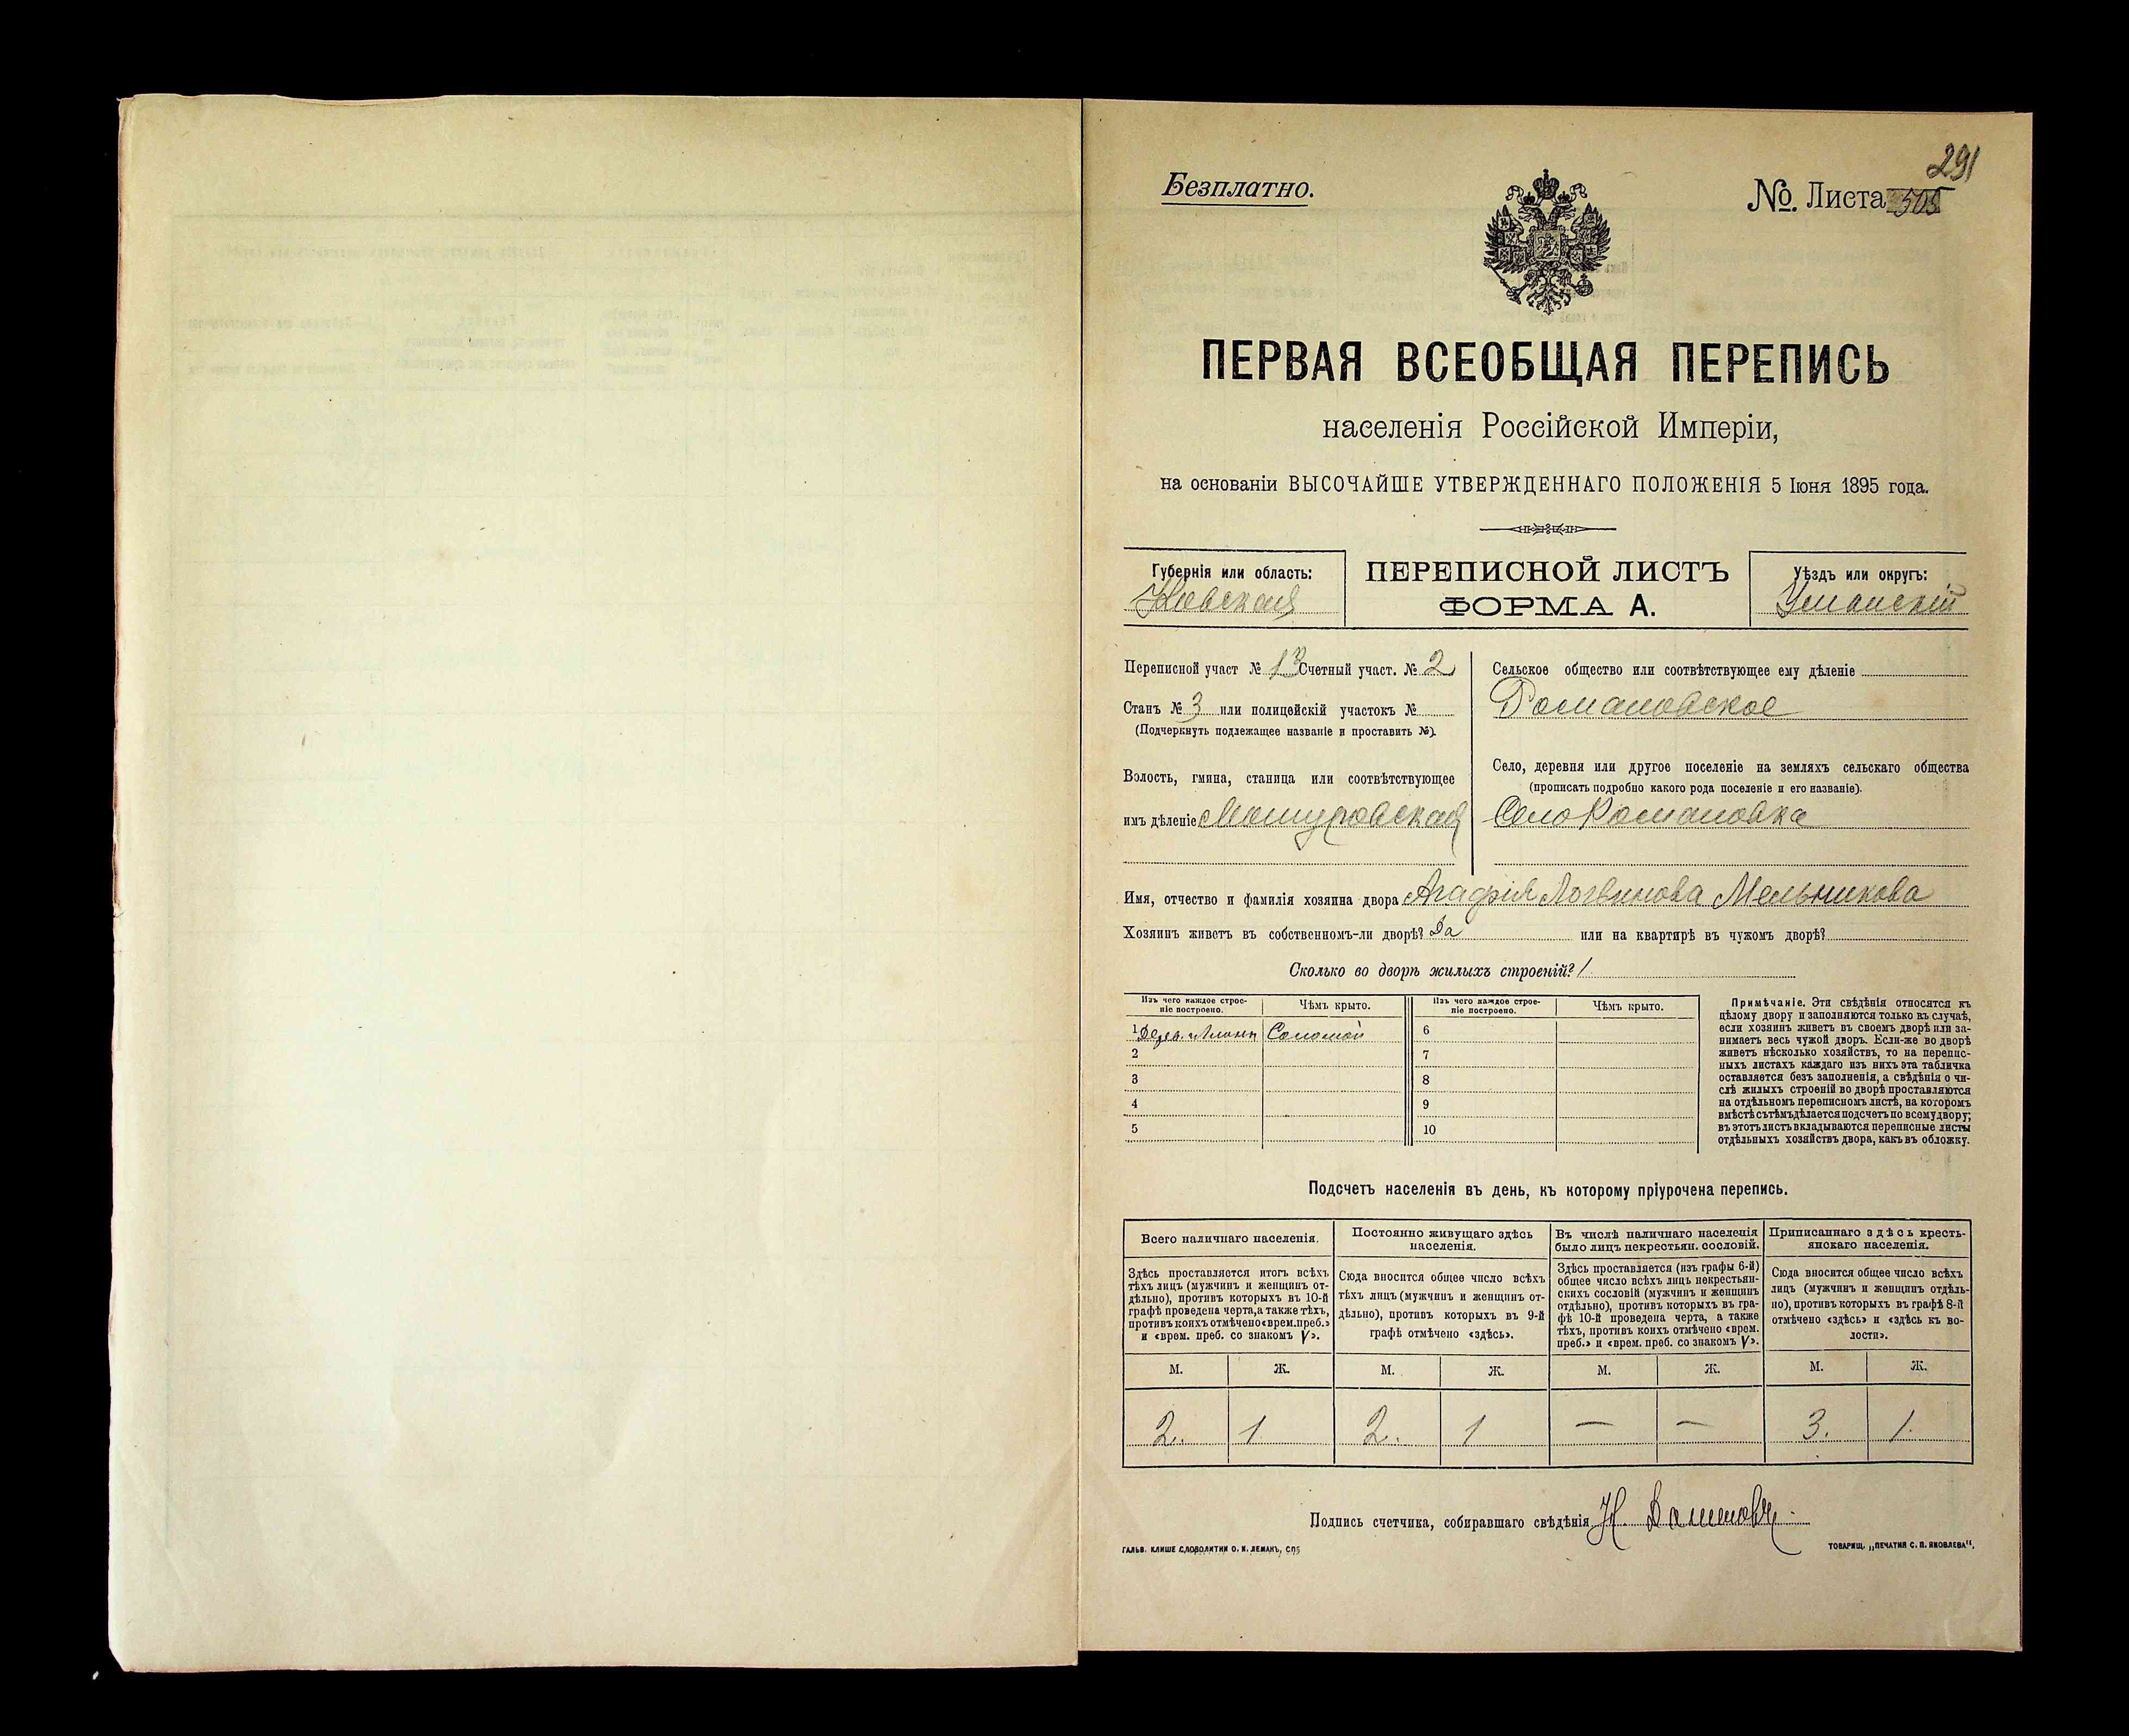 291
Безплатно.
№. Листа 505
ПЕРВАЯ ВСЕОБЩАЯ ПЕРЕПИСЬ
населенія Россійской Имперіи,
на основаніи ВЫСОЧАЙШЕ УТВЕРЖДЕННАГО ПОЛОЖЕНІЯ 5 Іюня 1895 года.
Губернія или область:
Кіевская
ПЕРЕПИСНОЙ ЛИСТЪ
ФОРМА А.
Уѣздъ или округъ:
Уманскій
Переписной участ № 13 Счетный участ. № 2
Станъ № 3 или полицейскій участокъ №
(Подчеркнуть подлежащее названіе и проставить №).
Волость, гмина, станица или соотвѣтствующее
имъ дѣленіе Мошуровская
Сельское общество или соотвѣтствующее ему дѣленіе
Романовское
Село, деревня или другое поселеніе на земляхъ сельскаго общества
(прописать подробно какого рода поселеніе и его названіе).
Село Романовка
Имя, отчество и фамилія хозяина двора Агафія Логвинова Мельникова
Хозяинъ живетъ въ собственномъ-ли дворѣ? Да или на квартирѣ въ чужомъ дворѣ?
Сколько во дворѣ жилыхъ строеній? 1
Изъ чего каждое строе-
ніе построено.
Чѣмъ крыто.
Изъ чего каждое строе-
ніе построено.
Чѣмъ крыто.
1 Дерев. Соломой 6
2 7
3 8
4 9
5 10
Примѣчаніе. Эти свѣдѣнія относятся къ
цѣлому двору и заполняются только въ случаѣ,
если хозяинъ живетъ въ своемъ дворѣ или за-
нимаетъ весь чужой дворъ. Если-же во дворѣ
живетъ нѣсколько хозяйствъ, то на перепис-
ныхъ листахъ каждаго изъ нихъ эта табличка
оставляется безъ заполненія, а свѣдѣнія о чи-
слѣ жилыхъ строеній во дворѣ проставляются
на отдѣльномъ переписномъ листѣ, на которомъ
вмѣстѣ съ тѣмъ дѣлается подсчетъ по всему двору;
въ этотъ листъ вкладываются переписные листы
отдѣльныхъ хозяйствъ двора, какъ въ обложку.
Подсчетъ населенія въ день, къ которому пріурочена перепись.
Всего наличнаго населенія.
Здѣсь проставляется итогъ всѣхъ
тѣхъ лицъ (мужчинъ и женщинъ от-
дѣльно), противъ которыхъ въ 10-й
графѣ проведена черта, а также тѣхъ,
противъ коихъ отмѣчено «врем. преб.»
и «врем. преб. со знакомъ V».
Постоянно живущаго здѣсь
населенія.
Сюда вносится общее число всѣхъ
тѣхъ лицъ (мужчинъ и женщинъ от-
дѣльно), противъ которыхъ въ 9-й
графѣ отмѣчено «здѣсь».
Въ числѣ наличнаго населенія
было лицъ некрестьян. сословій.
Здѣсь проставляется (изъ графы 6-й)
общее число всѣхъ лицъ некрестьян-
скихъ сословій (мужчинъ и женщинъ
отдѣльно), противъ которыхъ въ гра-
фѣ 10-й проведена черта, а также
тѣхъ, противъ коихъ отмѣчено «врем.
преб.» и «врем. преб. со знакомъ V».
Приписаннаго здѣсь кресть-
янскаго населенія.
Сюда вносится общее число всѣхъ
лицъ (мужчинъ и женщинъ отдѣль-
но), противъ которыхъ въ графѣ 8-й
отмѣчено «здѣсь» и «здѣсь къ во-
лости».
М. Ж. М. Ж. М. Ж. М. Ж.
2. 1 2. 1 — — 3. 1.
Подпись счетчика, собиравшаго свѣдѣнія Н.
ГАЛЬВ. КЛИШЕ СЛОВОЛИТНИ О. И. ЛЕМАНЪ, СПБ
ТОВАРИЩ. „ПЕЧАТНЯ С. П. ЯКОВЛЕВА",